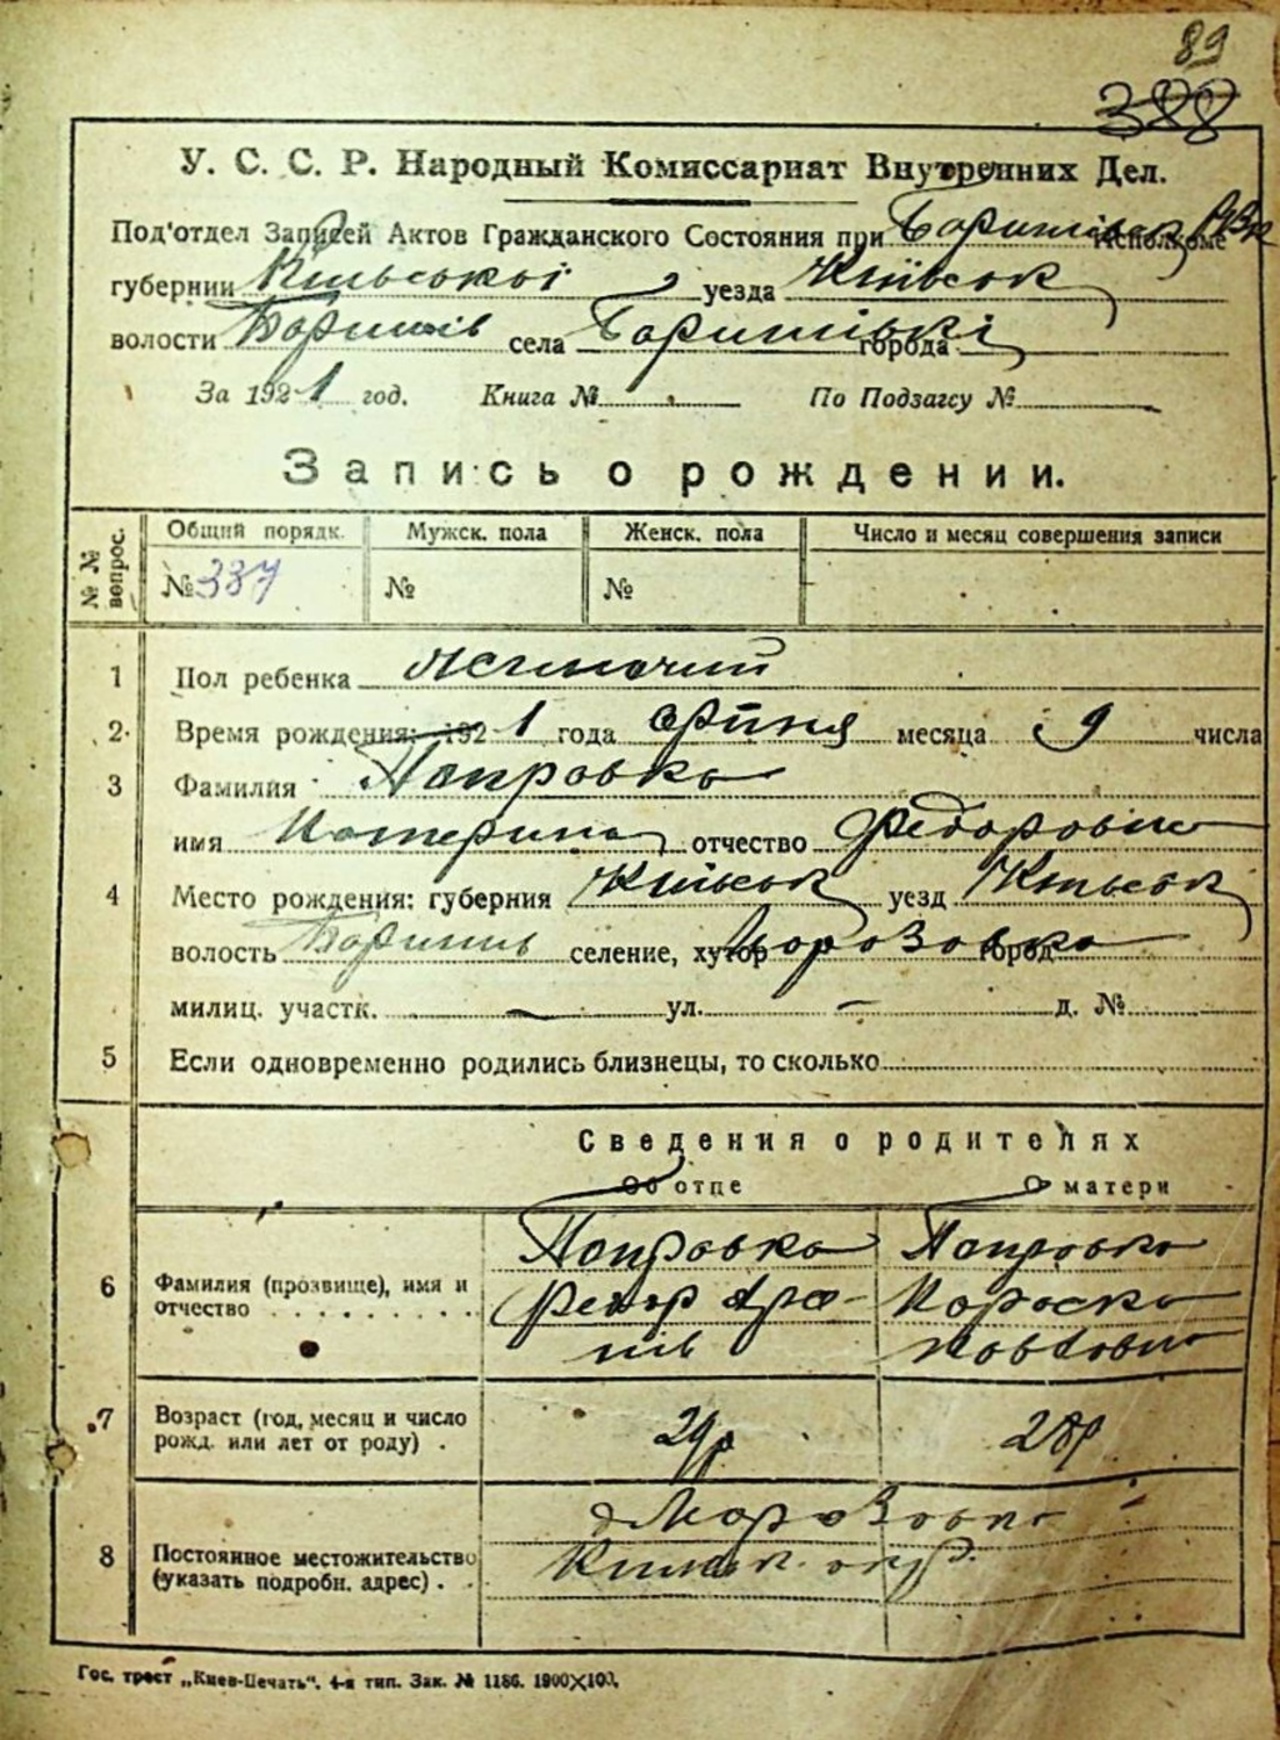 89
388
У. С. С. Р. Народный Комиссариат Внутренних Дел.
Под'отдел Записей Актов Гражданского Состояния при Баришівск РВК Исполкоме
губернии Київської уезда Київськ
волости Баришів села Баришівкі города
За 1921 год. Книга № По Подзагсу №
Запись о рождении.
№№ вопрос. Общий порядк. Мужск. пола Женск. пола Число и месяц совершения записи
№ 337 № №
1 Пол ребенка жіночий
2 Время рождения: 1921 года месяца 9 числа
3 Фамилия Папровка
имя Катерина отчество Федоровна
4 Место рождения: губерния Київськ уезд Київськ
волость Бориш селение, хутор Морозовка город
милиц. участк. — ул. — д. №
5 Если одновременно родились близнецы, то сколько
Сведения о родителях
Об отце О матери
6 Фамилия (прозвище), имя и отчество Папровка Папровка
Федор
7 Возраст (год, месяц и число рожд. или лет от роду) 29р 28р
8 Постоянное местожительство (указать подробн. адрес) Морозовка
окр.
Гос. трест „Киев-Печать“. 4-я тип. Зак. № 1186. 1900×100.